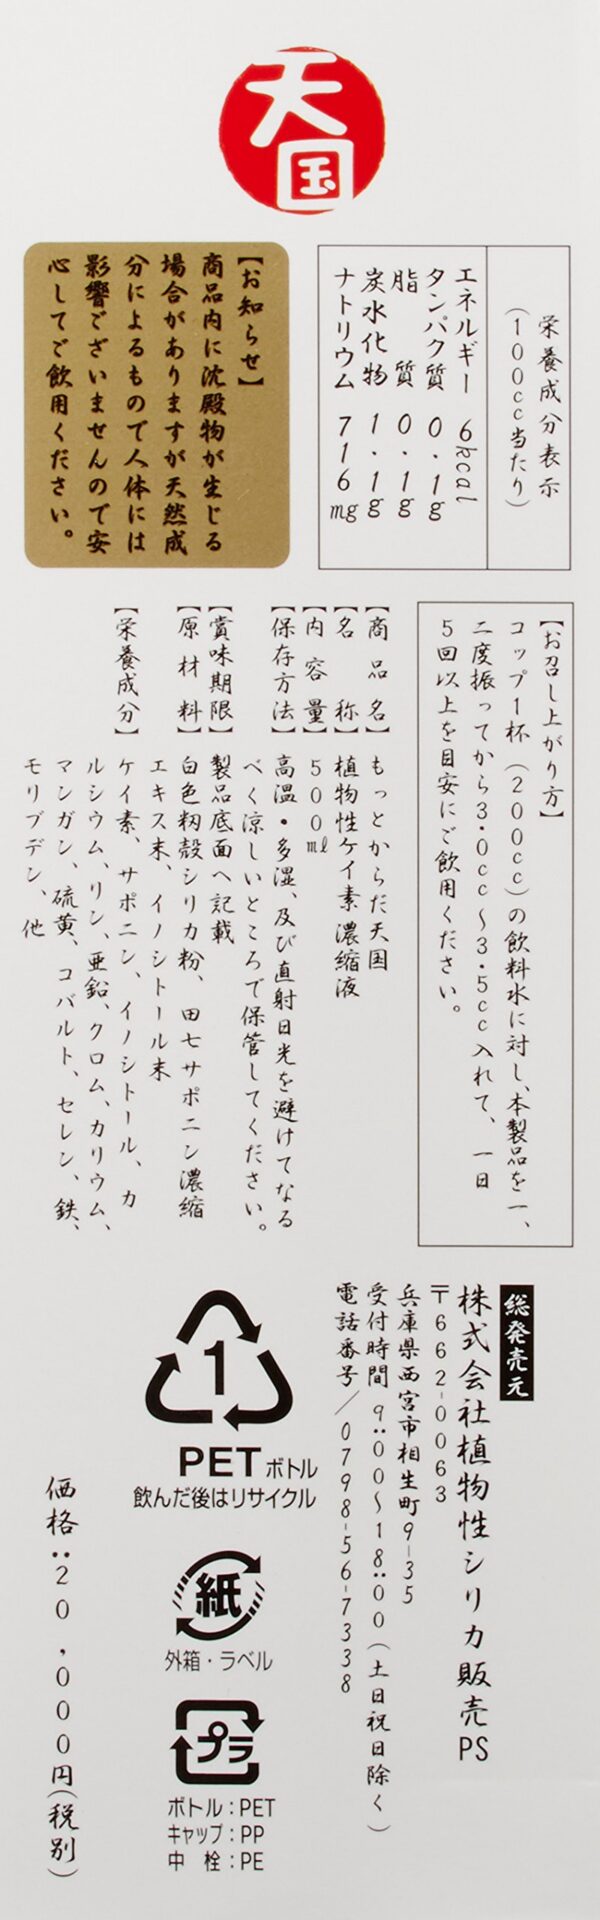 天国
栄養成分表示
(100cc当たり)
エネルギー 6kcal
タンパク質 0.1g
脂質 0.1g
炭水化物 1.1g
ナトリウム 716mg
【お知らせ】
商品内に沈殿物が生じる
場合がありますが天然成
分によるもので人体には
影響ございませんので安
心してご飲用ください。
【お召し上がり方】
コップ1杯(200cc)の飲料水に対し、本製品を一、
二度振ってから3.0cc〜3.5cc入れて、一日
5回以上を目安にご飲用ください。
【商品名】もっとからだ天国
【名称】植物性ケイ素濃縮液
【内容量】500ml
【保存方法】高温・多湿、及び直射日光を避けてなる
べく涼しいところで保管してください。
【賞味期限】製品底面へ記載
【原材料】白色籾殻シリカ粉、田七サポニン濃縮
エキス末、イノシトール末
【栄養成分】ケイ素、サポニン、イノシトール、カ
ルシウム、リン、亜鉛、クロム、カリウム、
マンガン、硫黄、コバルト、セレン、鉄、
モリブデン、他
総発売元
株式会社植物性シリカ販売PS
〒662-0063
兵庫県西宮市相生町9-35
受付時間 9:00〜18:00(土日祝日除く)
電話番号/0798-56-7338
1
PETボトル
飲んだ後はリサイクル
紙
外箱・ラベル
プラ
ボトル:PET
キャップ:PP
中栓:PE
価格:20,000円(税別)